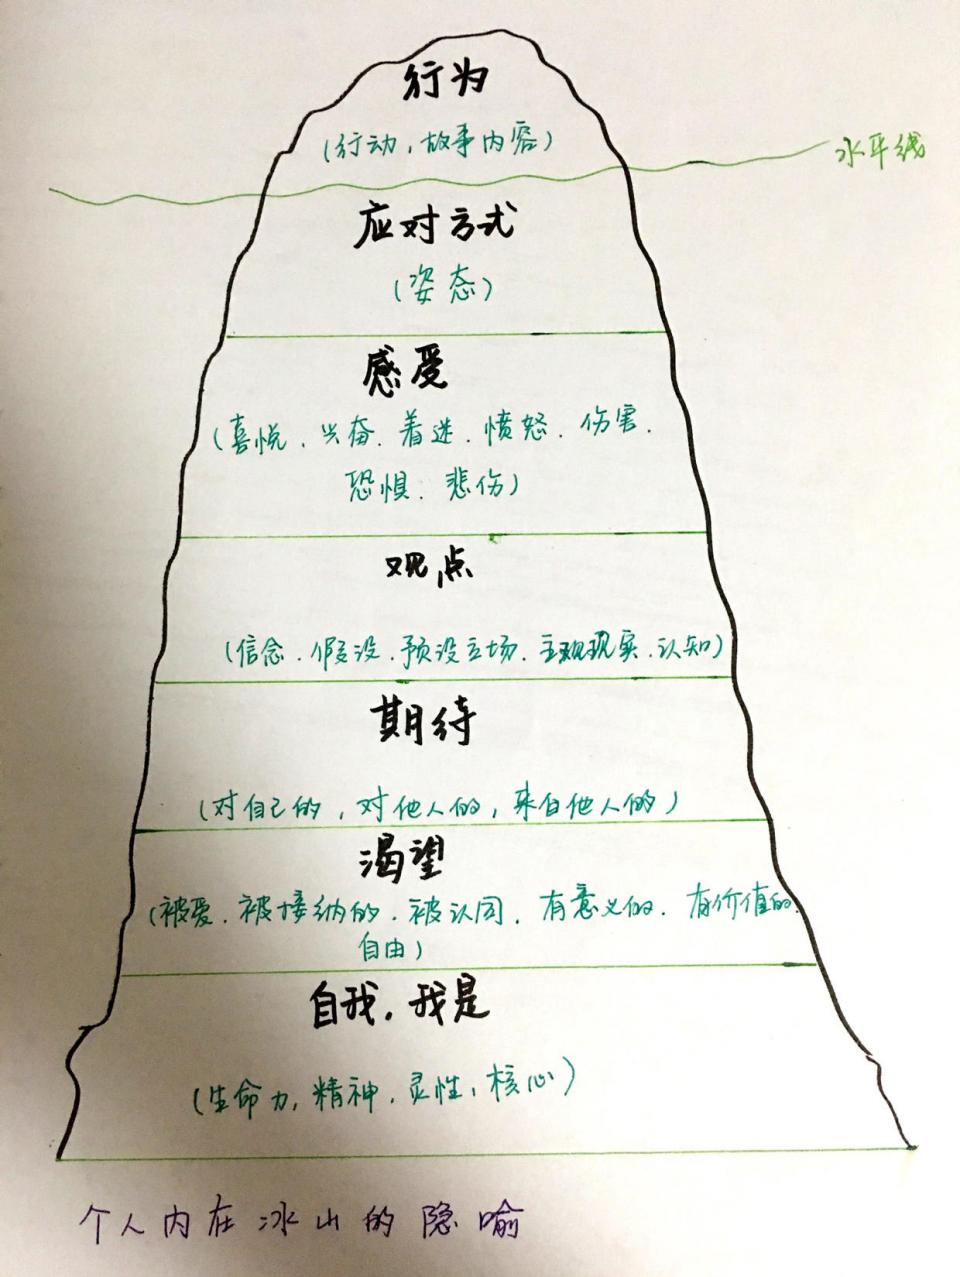 行为
(行动，故事内容)
水平线
应对方式
(姿态)
感受
(喜悦、兴奋、着迷、愤怒、伤害、
恐惧、悲伤)
观点
(信念、假设、预设立场、主观现实、认知)
期待
(对自己的，对他人的，来自他人的)
渴望
(被爱、被接纳的、被认同、有意义的、有价值的、
自由)
自我，我是
(生命力，精神，灵性，核心)
个人内在冰山的隐喻